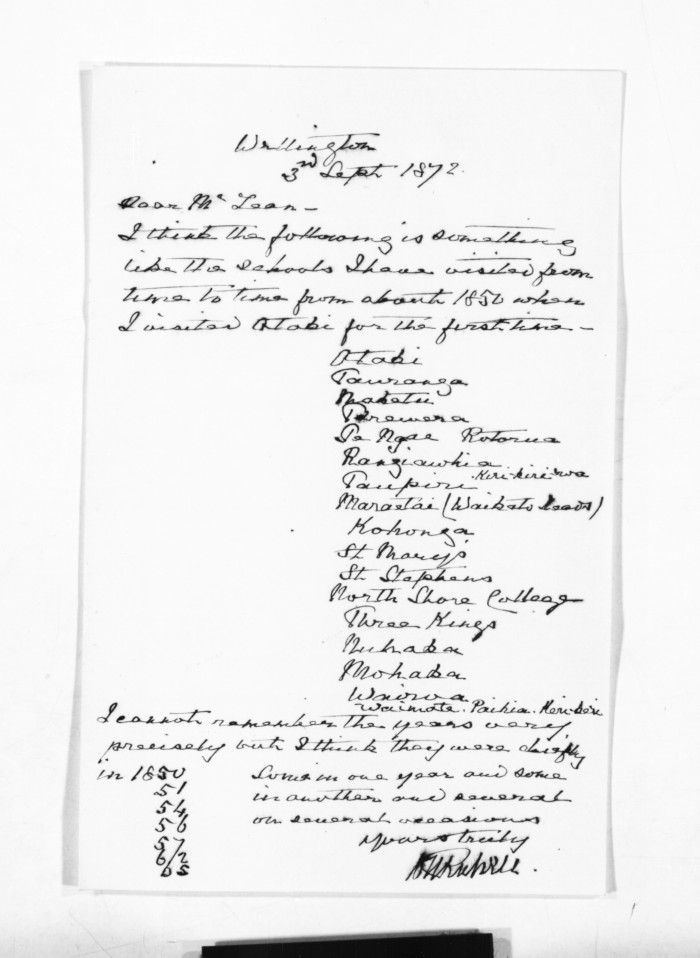 Wellington
3rd Sept 1872.
Dear Mc Lean -
I think the following is something
like the schools I have visited from
time to time from about 1850 when
I visited Otaki for the first time -
Otaki
Tauranga
Maketu
Terewera
Te Ngae Rotorua
Rangiawhia
Taupiri Kiri-kiri roa
Maraetai (Waikato heads)
Kohonga
St Marys
St Stephens
North Shore College
Three Kings
Nuhaka
Mohaka
Wairoa
Waimate. Paihia. Keri-keri
I cannot remember the years very
precisely but I think they were chiefly
in 1850 Some in one year and some
51 in another and several
54 on several occasions
56 yours truly
57
6/2
65